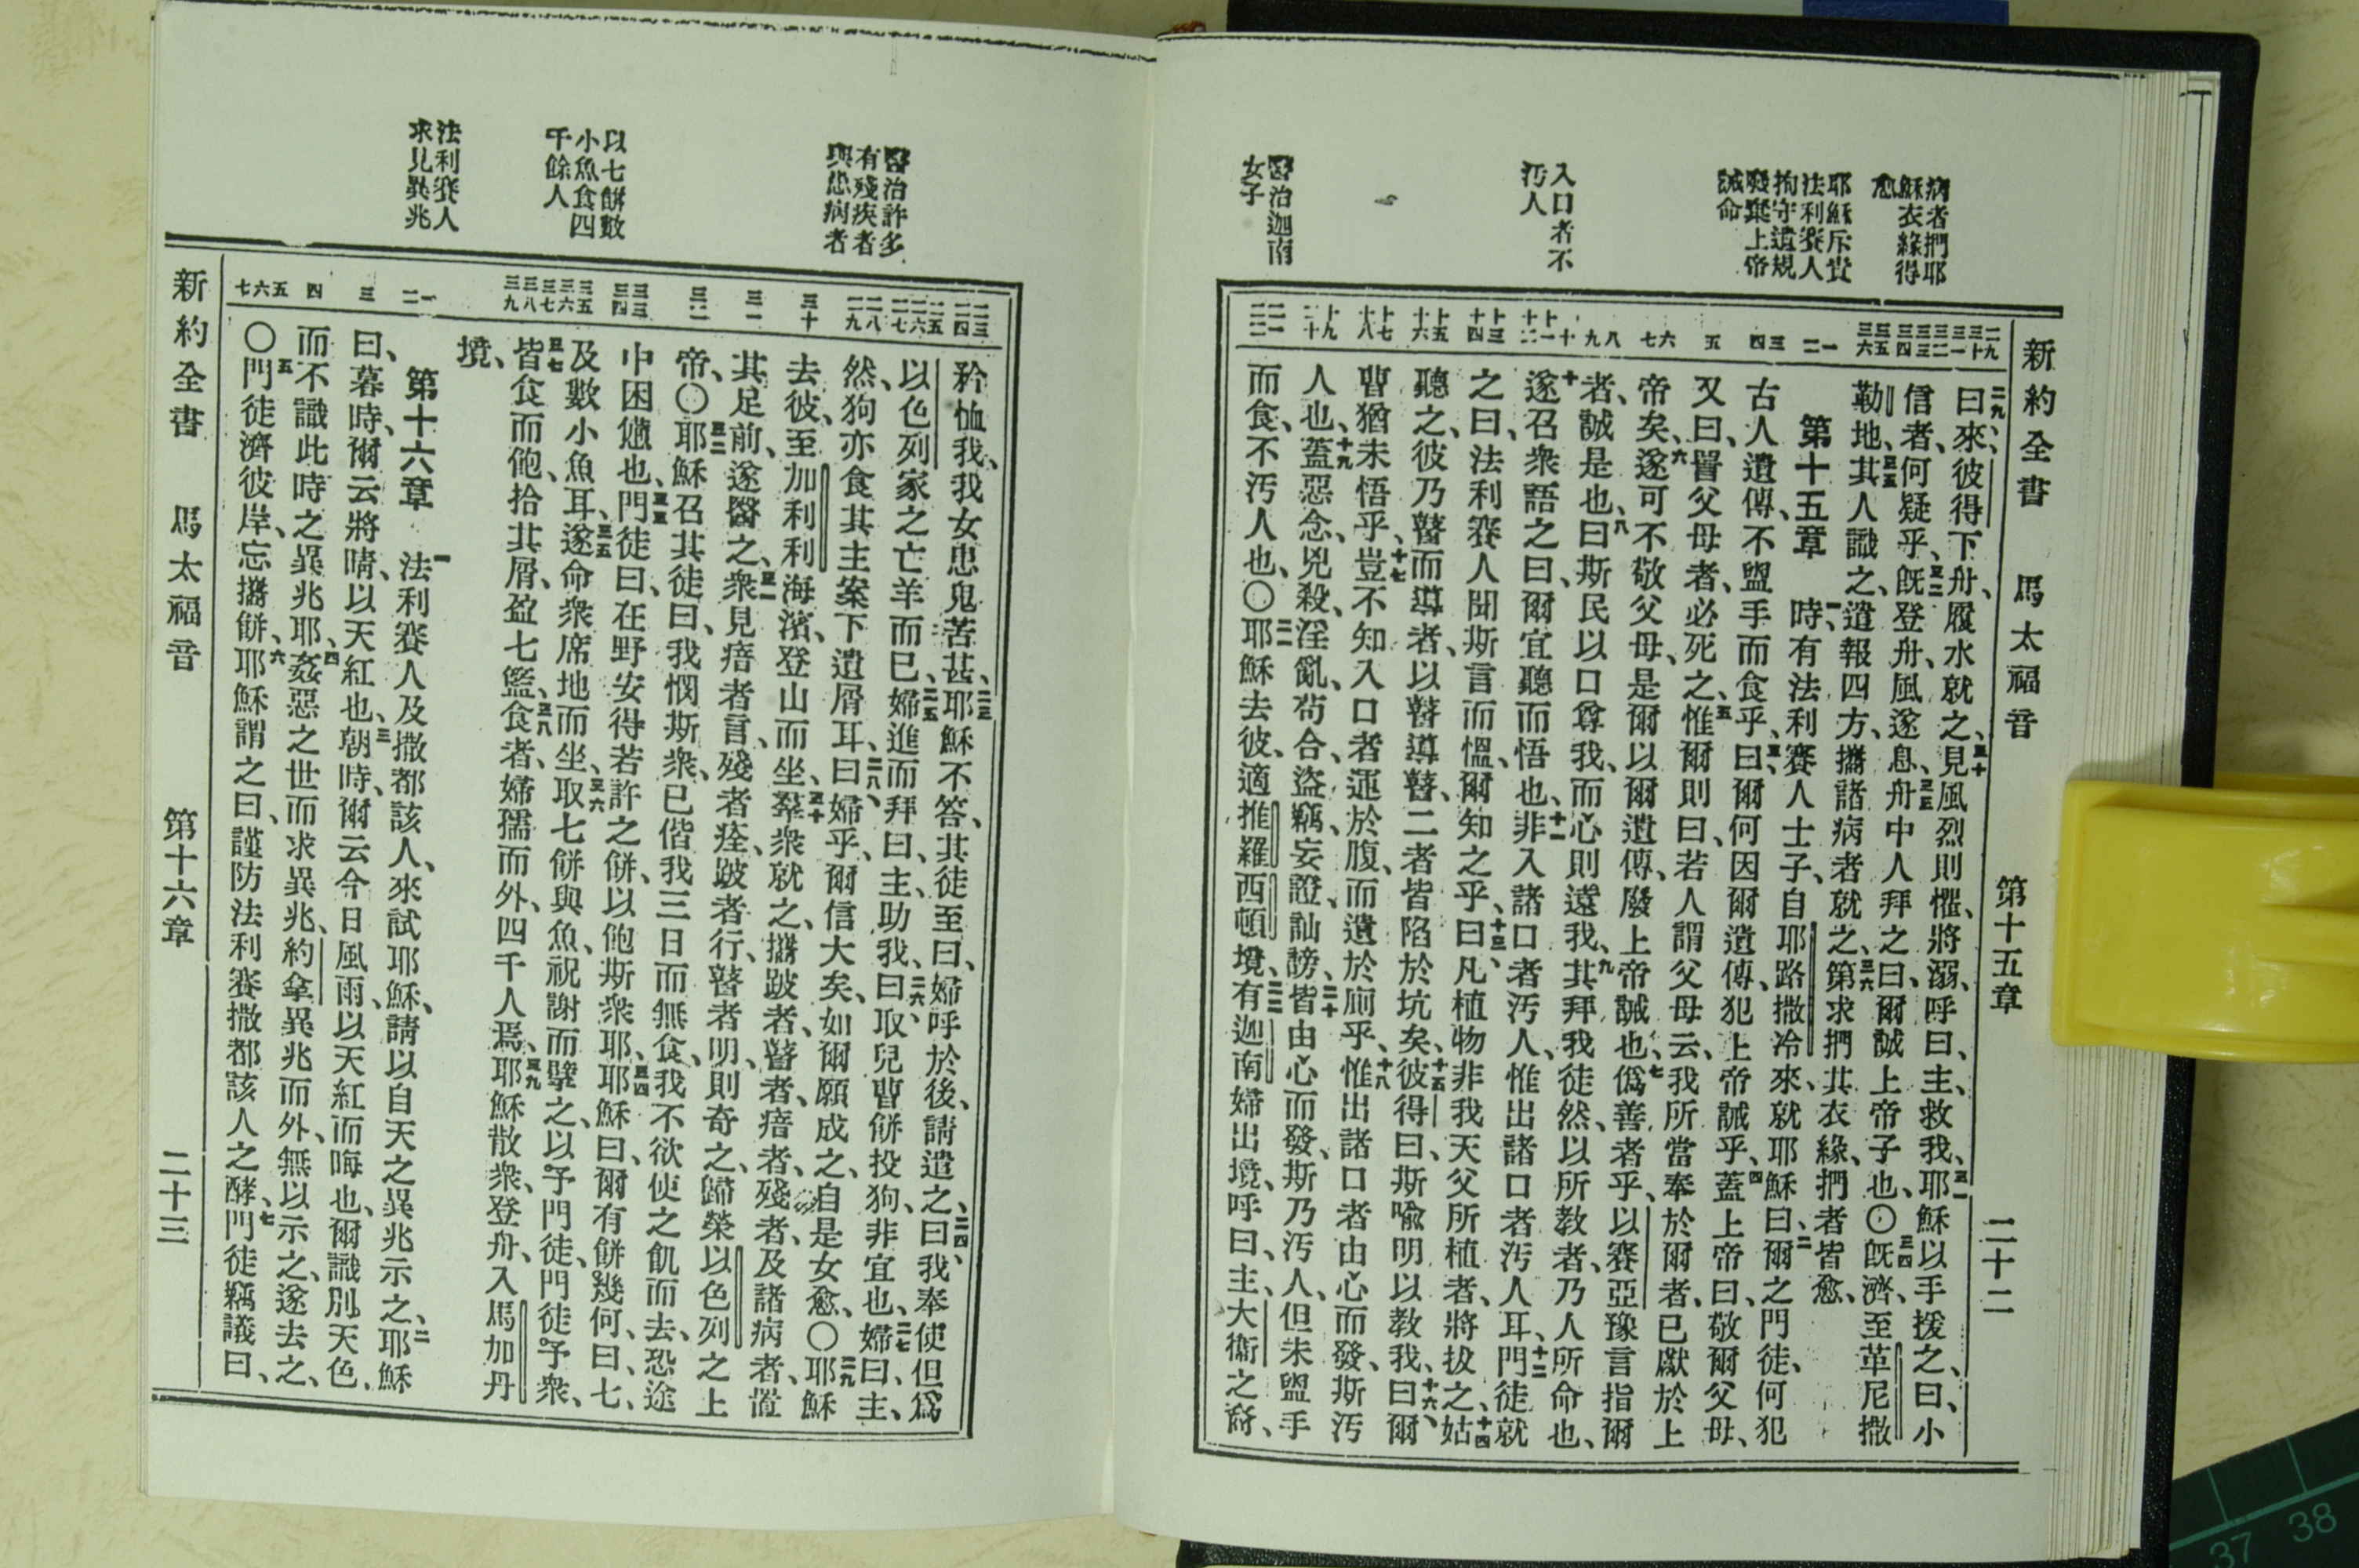 新約全書 馬太福音 第十五章 二十二
病者捫耶
穌衣緣得
愈
耶穌斥責
法利賽人
拘守遺規
廢棄上帝
誡命
入口者不
污人
醫治迦南
女子
二九 三十 三一 三二 三三 三四 三五 三六 一 二 三 四 五 六 七 八 九 十 十一 十二 十三 十四 十五 十六 十七 十八 十九 二十 二一 二二
二九曰、來、彼得下舟、履水就之、三十見風烈則懼、將溺、呼曰、主、救我、三一耶穌以手援之、曰、小
信者、何疑乎、三二旣登舟、風遂息、三三舟中人拜之曰、爾誠上帝子也、〇三四旣濟、至革尼撒
勒地、三五其人識之、遣報四方、攜諸病者就之、三六第求捫其衣緣、捫者皆愈、
第十五章 一時、有法利賽人士子、自耶路撒冷來、就耶穌曰、二爾之門徒、何犯
古人遺傳、不盥手而食乎、三曰、爾何因爾遺傳、犯上帝誡乎、四蓋上帝曰、敬爾父母、
又曰、詈父母者、必死之、五惟爾則曰、若人謂父母云、我所當奉於爾者、已獻於上
帝矣、六遂可不敬父母、是爾以爾遺傳、廢上帝誡也、七僞善者乎、以賽亞豫言指爾
者、誠是也、八曰、斯民以口尊我、而心則遠我、九其拜我徒然、以所教者、乃人所命也、
十遂召衆語之曰、爾宜聽而悟也、十一非入諸口者污人、惟出諸口者污人耳、十二門徒就
之曰、法利賽人聞斯言而慍、爾知之乎、十三曰、凡植物非我天父所植者、將拔之、十四姑
聽之、彼乃瞽而導者、以瞽導瞽、二者皆陷於坑矣、十五彼得曰、斯喩明以教我、十六曰、爾
曹猶未悟乎、十七豈不知入口者運於腹、而遺於廁乎、十八惟出諸口者由心而發、斯污
人也、十九蓋惡念、兇殺、淫亂、苟合、盜竊、妄證、訕謗、二十皆由心而發、斯乃污人、但未盥手
而食、不污人也、〇二一耶穌去彼、適推羅西頓境、二二有迦南婦出境、呼曰、主、大衞之裔、
醫治許多
有殘疾者
與患病者
以七餅數
小魚食四
千餘人
法利賽人
求見異兆
二三 二四 二五 二六 二七 二八 二九 三十 三一 三二 三三 三四 三五 三六 三七 三八 三九 一 二 三 四 五 六 七
矜恤我、我女患鬼苦甚、二三耶穌不答、其徒至曰、婦呼於後、請遣之、二四曰、我奉使但爲
以色列家之亡羊而已、二五婦進而拜曰、主、助我、二六曰、取兒曹餅投狗、非宜也、二七婦曰、主、
然、狗亦食其主案下遺屑耳、二八曰、婦乎、爾信大矣、如爾願成之、自是女愈、〇二九耶穌
去彼、至加利利海濱、登山而坐、三十羣衆就之、攜跛者、瞽者、瘖者、殘者、及諸病者、置
其足前、遂醫之、三一衆見瘖者言、殘者痊、跛者行、瞽者明、則奇之、歸榮以色列之上
帝、〇三二耶穌召其徒曰、我憫斯衆、已偕我三日而無食、我不欲使之飢而去、恐途
中困憊也、三三門徒曰、在野安得若許之餅、以飽斯衆耶、三四耶穌曰、爾有餅幾何、曰、七、
及數小魚耳、三五遂命衆席地而坐、三六取七餅與魚、祝謝而擘之、以予門徒、門徒予衆、
三七皆食而飽、拾其屑、盈七籃、三八食者、婦孺而外、四千人焉、三九耶穌散衆、登舟、入馬加丹
境、
第十六章 一法利賽人及撒都該人、來試耶穌、請以自天之異兆示之、二耶穌
曰、暮時、爾云將晴、以天紅也、三朝時、爾云今日風雨、以天紅而晦也、爾識別天色、
而不識此時之異兆耶、四姦惡之世而求異兆、約拿異兆而外、無以示之、遂去之、
〇五門徒濟彼岸、忘攜餅、六耶穌謂之曰、謹防法利賽撒都該人之酵、七門徒竊議曰、
新約全書 馬太福音 第十六章 二十三
37 38